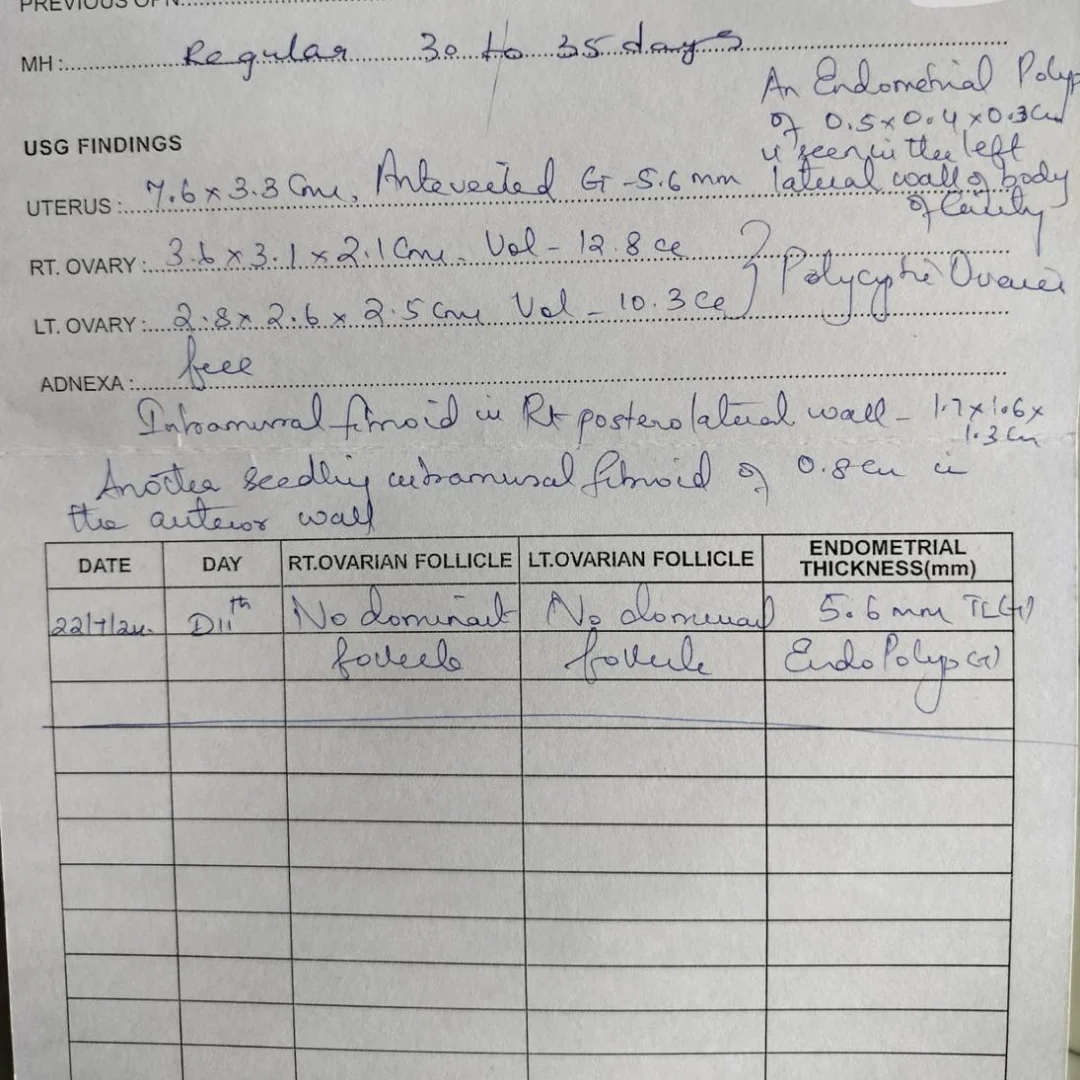 PREVIOUS OPN
MH : Regular 30 to 35 days
An Endometrial Polyp
of 0.5 x 0.4 x 0.3 cm
is seen in the left
lateral wall of body
of Cavity
USG FINDINGS
UTERUS : 7.6 x 3.3 Cms, Anteverted ET - 5.6 mm
RT. OVARY : 3.6 x 3.1 x 2.1 Cms, Vol - 12.8 cc
LT. OVARY : 2.8 x 2.6 x 2.5 Cms Vol - 10.3 cc } Polycystic Ovaries
ADNEXA : free
Intramural fibroid in Rt posterolateral wall - 1.7 x 1.6 x
1.3 cm
Another seedling intramural fibroid of 0.8 cm in
the anterior wall
DATE DAY RT.OVARIAN FOLLICLE LT.OVARIAN FOLLICLE ENDOMETRIAL THICKNESS(mm)
22/7/24. D11th No dominant No dominant 5.6 mm TL(+)
follicle follicle Endo Polyp (+)